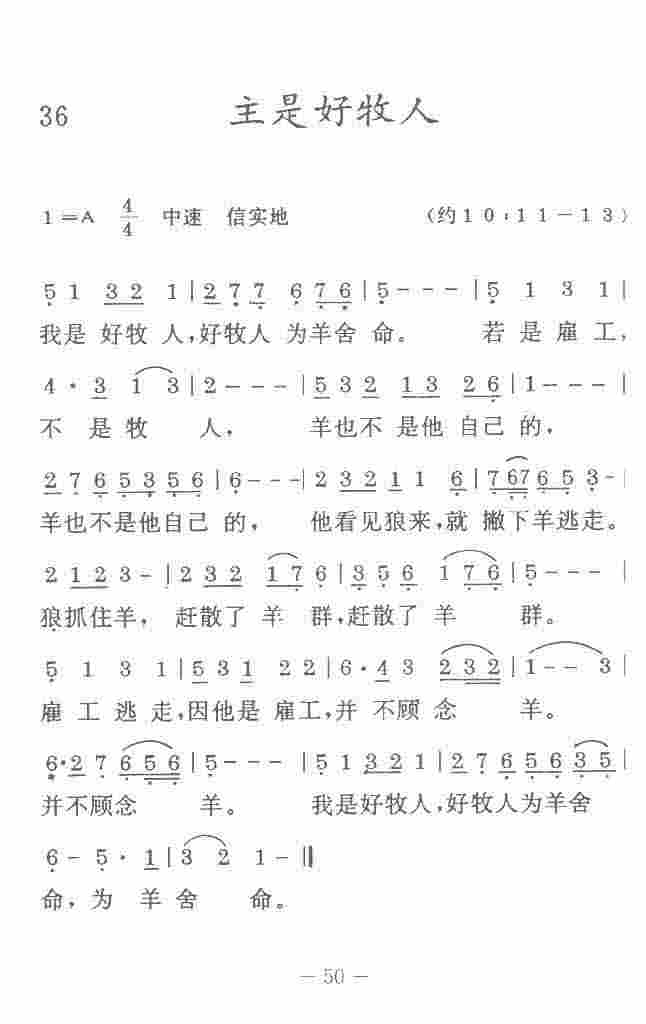 36 主是好牧人
1=A 4/4 中速 信实地 (约10:11-13)
5 1 3 2 1 | 2 7 7 6 7 6 | 5 - - - | 5 1 3 1 |
我是 好牧 人,好牧人 为羊舍 命。 若 是 雇 工,
4 · 3 1 3 | 2 - - - | 5 3 2 1 3 2 6 | 1 - - - |
不 是 牧 人, 羊也不 是他 自己 的,
2 7 6 5 3 5 6 | 6 - - - | 2 3 2 1 1 6 | 7 6 7 6 5 3 - |
羊也不是他自己 的, 他看见狼来,就 撇下羊逃走。
2 1 2 3 - | 2 3 2 1 7 6 | 3 5 6 1 7 6 | 5 - - - |
狼抓住羊, 赶散了 羊 群,赶散了 羊 群。
5 1 3 1 | 5 3 1 2 2 | 6 · 4 3 2 3 2 | 1 - - 3 |
雇 工 逃 走,因他是 雇工,并 不顾 念 羊。
6 · 2 7 6 5 6 | 5 - - - | 5 1 3 2 1 | 2 7 6 5 6 3 5 |
并不顾念 羊。 我是好牧人,好牧人为羊舍
6 - 5 · 1 | 3 2 1 - ‖
命, 为 羊 舍 命。
— 50 —